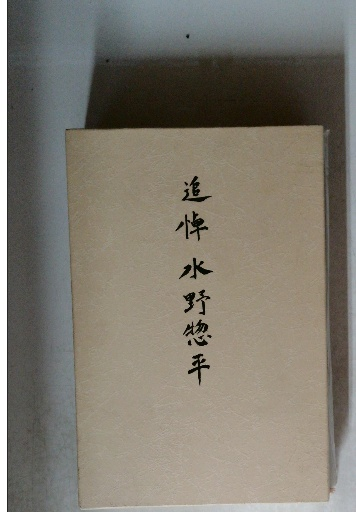 追悼 水野惣平